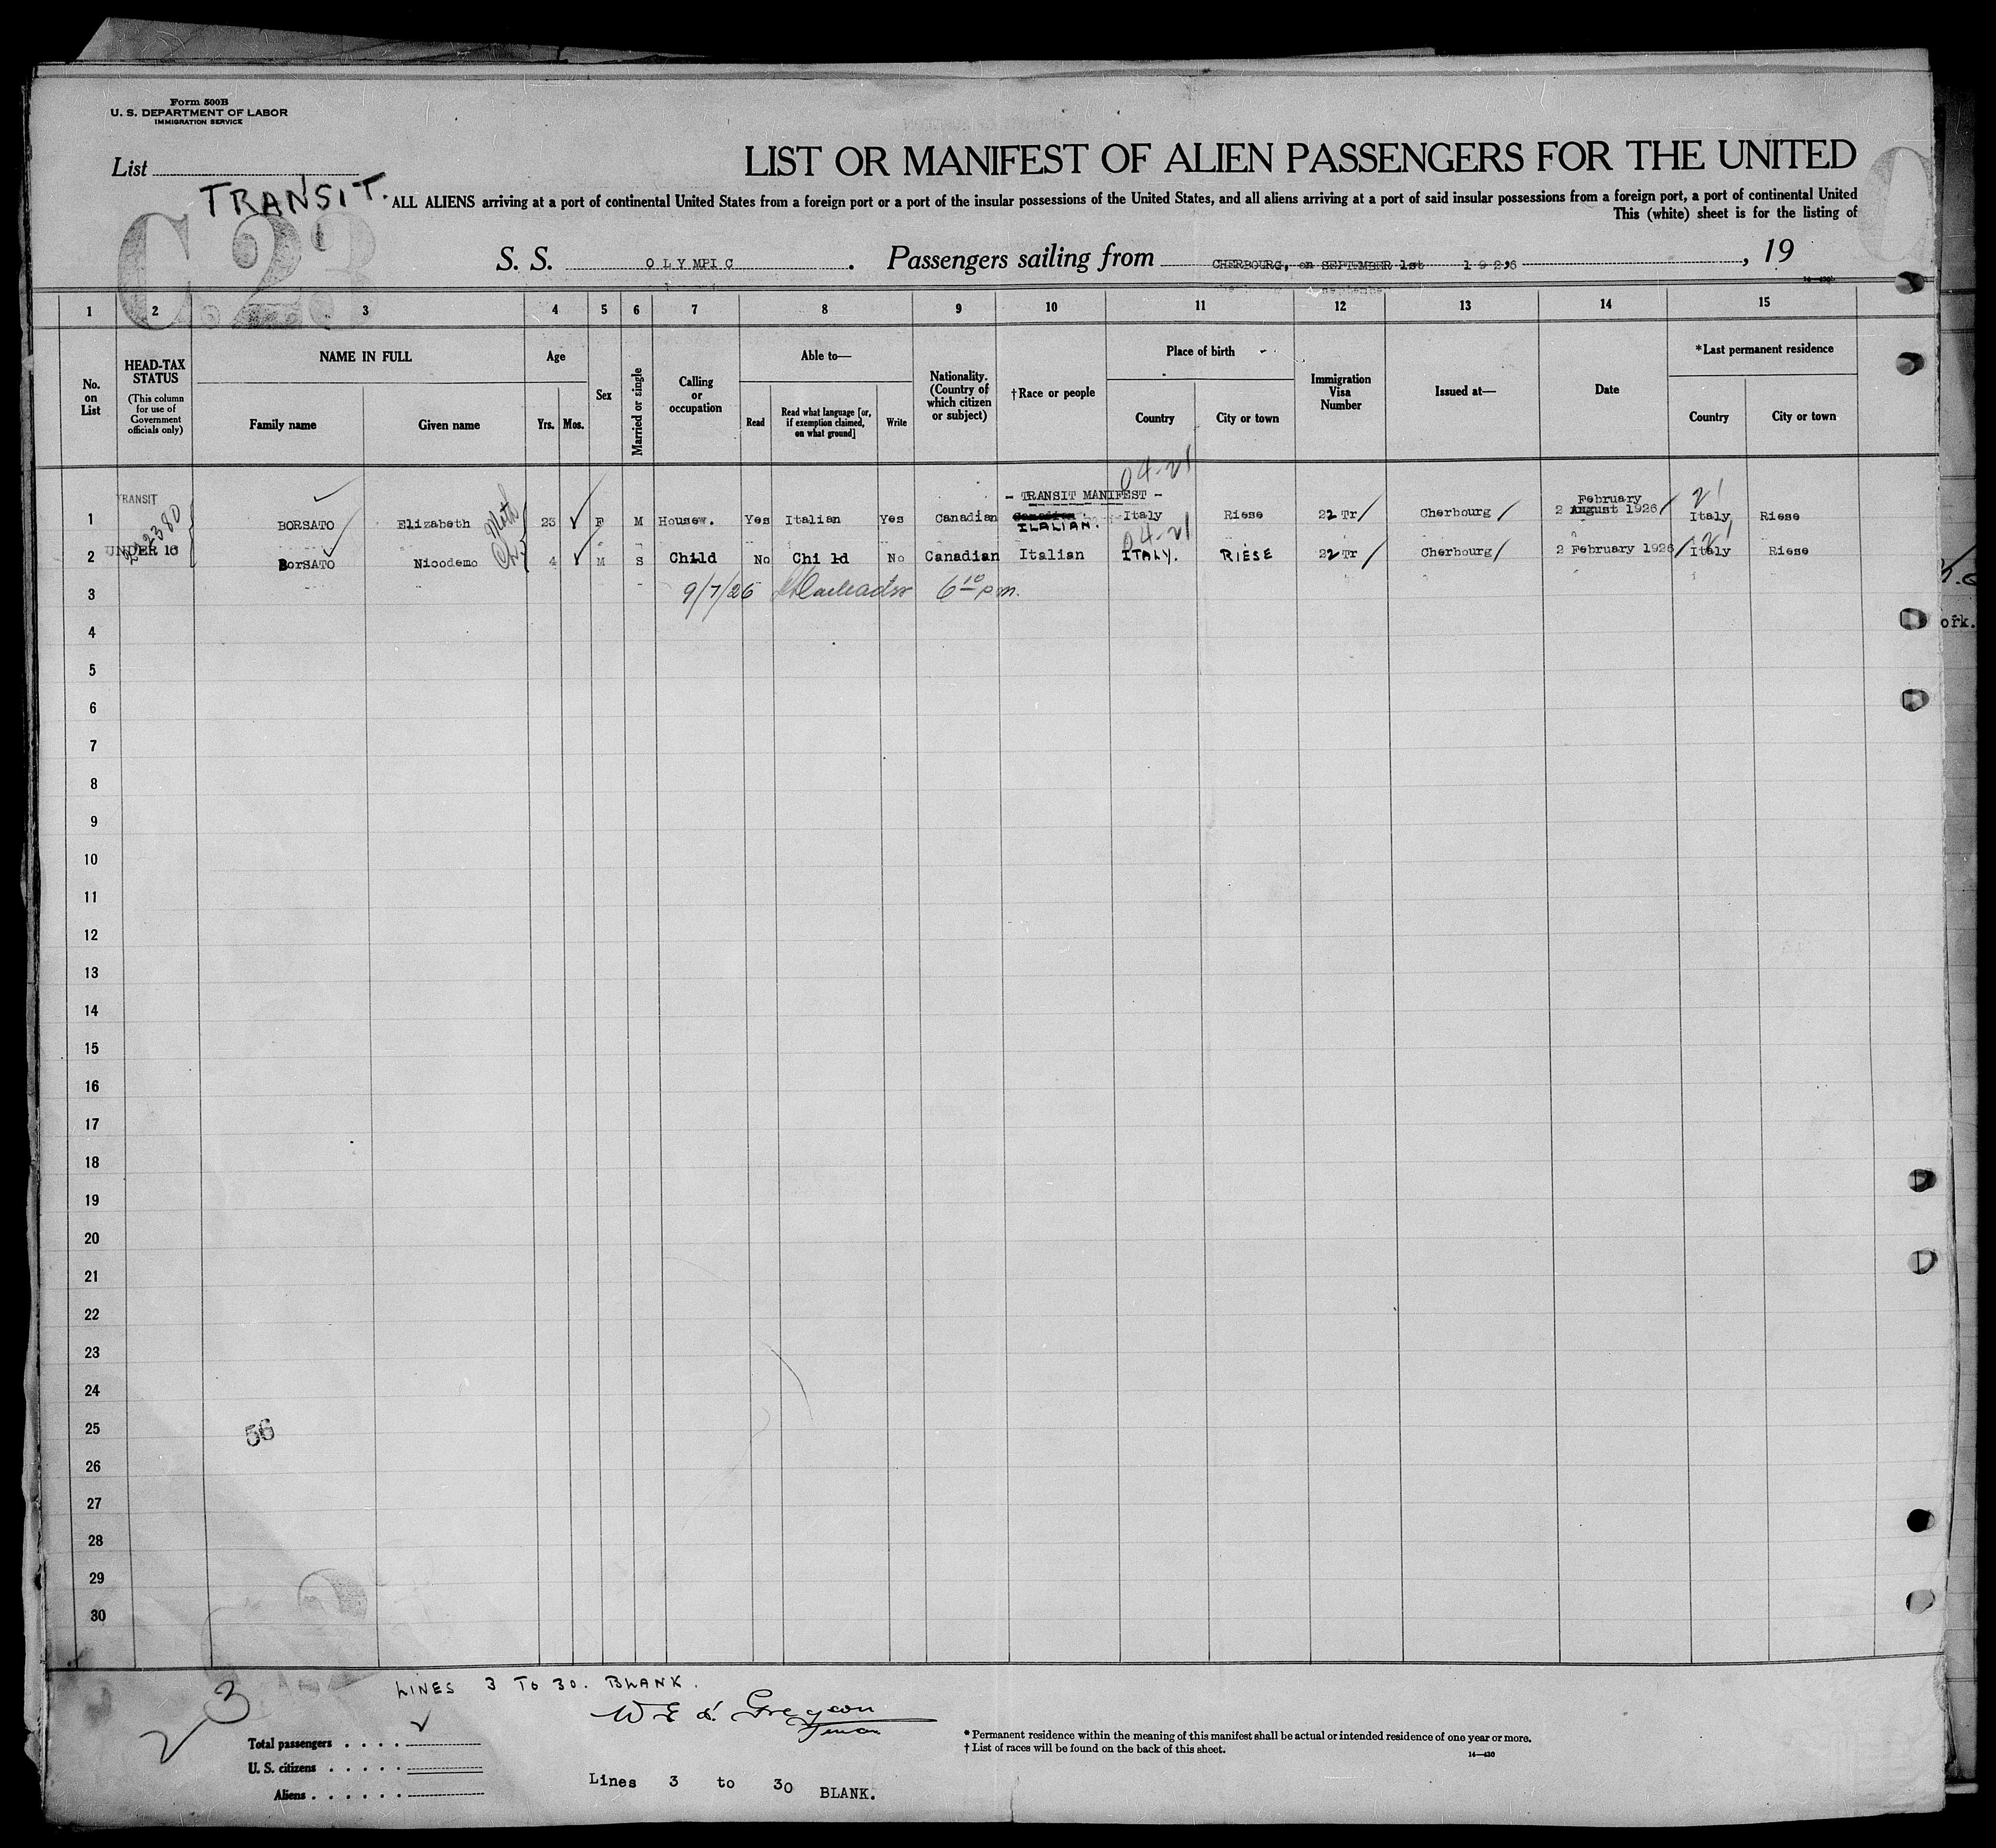 Form 500B
U. S. DEPARTMENT OF LABOR
IMMIGRATION SERVICE
List
TRANSIT.
C.23
LIST OR MANIFEST OF ALIEN PASSENGERS FOR THE UNITED
ALL ALIENS arriving at a port of continental United States from a foreign port or a port of the insular possessions of the United States, and all aliens arriving at a port of said insular possessions from a foreign port, a port of continental United
This (white) sheet is for the listing of
S. S. OLYMPIC . Passengers sailing from CHERBOURG, on SEPTEMBER 1st 1926 , 19
1 2 3 4 5 6 7 8 9 10 11 12 13 14 15
No. on List
HEAD-TAX STATUS
(This column for use of Government officials only)
NAME IN FULL
Family name Given name
Age
Yrs. Mos.
Sex
Married or single
Calling or occupation
Able to—
Read
Read what language [or, if exemption claimed, on what ground]
Write
Nationality. (Country of which citizen or subject)
†Race or people
Place of birth
Country City or town
Immigration Visa Number
Issued at—
Date
*Last permanent residence
Country City or town
04-21
- TRANSIT MANIFEST -
TRANSIT
February
1 BORSATO Elizabeth 25 F M Housew. Yes Italian Yes Canadian Canadian Italy Riese 22 Tr Cherbourg 2 August 1926 Italy Riese
ILALIAN.
04-21
UNDER 16
2 BorSATO Nicodemo 4 M S Child No Chi ld No Canadian Italian ITALY. RIESE 22 Tr Cherbourg 2 February 1926 Italy Riese
3 9/7/26 6 10 p.m.
4
5
6
7
8
9
10
11
12
13
14
15
16
17
18
19
20
21
22
23
24
25
56
26
27
28
29
30
LINES 3 TO 30. BLANK.
23
Total passengers
U. S. citizens
Aliens
Lines 3 to 30 BLANK.
* Permanent residence within the meaning of this manifest shall be actual or intended residence of one year or more.
† List of races will be found on the back of this sheet.
14—430
ork.